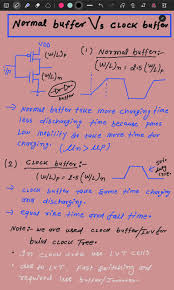 Normal buffer Vs clock buffer
VDD
(W/L)p
I/p
(W/L)n
(1) Normal buffer:-
(W/L)n = 2.5 (W/L)p
→ Normal buffer take more charging time
less discharging time because pmos
Low mobility so take more time for
charging. (μn > μp)
(2) Clock buffer:-
(W/L)p = 2.5 (W/L)n
→ clock buffer take same time charging
and discharging.
→ equal rise time and fall time.
Note:- we are used clock buffer/INV for
build clock Tree.
• In clock we use LVT cells
due to LVT fast switching and
required less buffer/